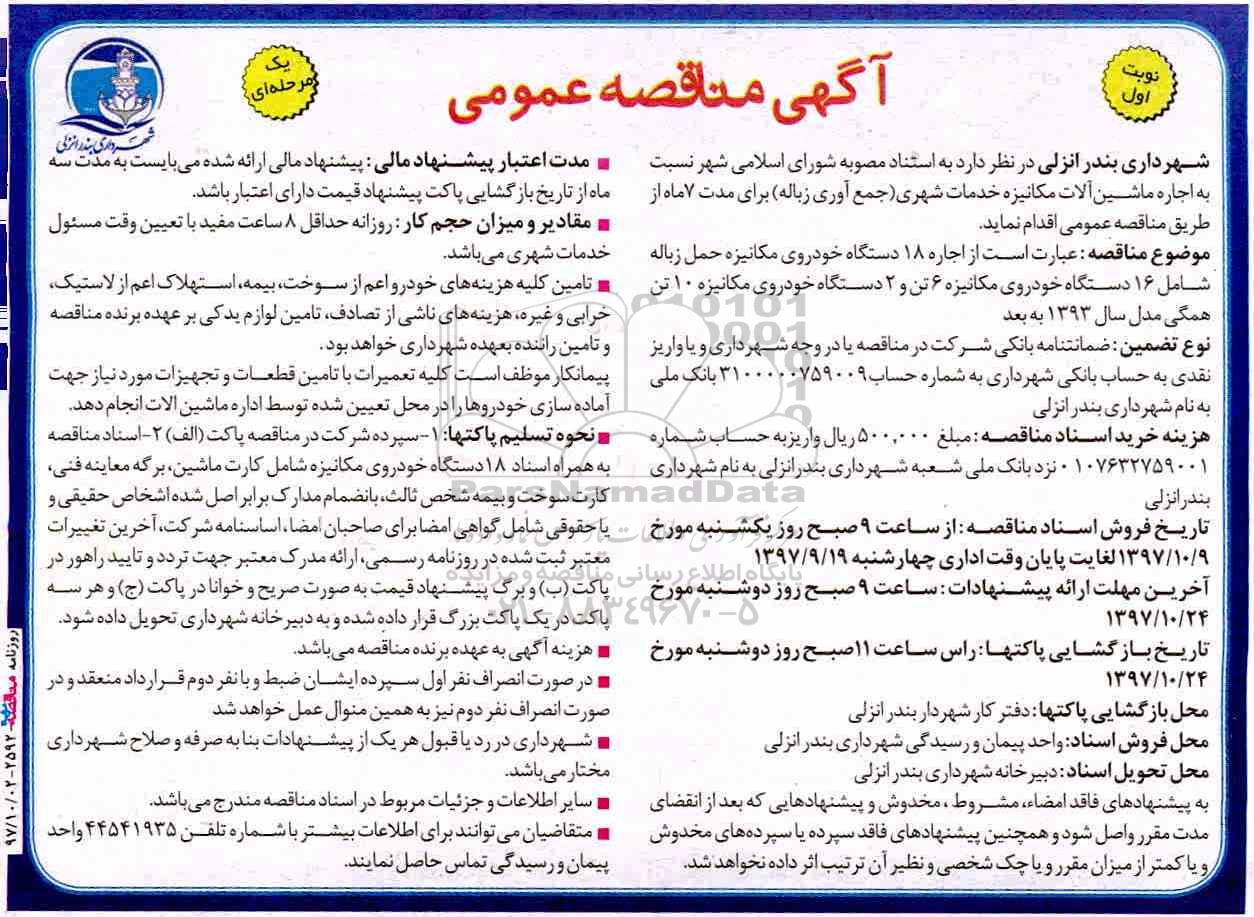 آگهی مناقصه عمومی
نوبت
اول
یک
مرحله‌ای
شهرداری بندرانزلی
شهرداری بندر انزلی در نظر دارد به استناد مصوبه شورای اسلامی شهر نسبت
به اجاره ماشین‌آلات مکانیزه خدمات شهری(جمع آوری زباله) برای مدت ۷ماه از
طریق مناقصه عمومی اقدام نماید.
موضوع مناقصه : عبارت است از اجاره ۱۸ دستگاه خودروی مکانیزه حمل زباله
شامل ۱۶ دستگاه خودروی مکانیزه ۶ تن و ۲ دستگاه خودروی مکانیزه ۱۰ تن
همگی مدل سال ۱۳۹۳ به بعد
نوع تضمین : ضمانتنامه بانکی شرکت در مناقصه یا در وجه شهرداری و یا واریز
نقدی به حساب بانکی شهرداری به شماره حساب۳۱۰۰۰۰۰۷۵۹۰۰۹ بانک ملی
به نام شهرداری بندر انزلی
هزینه خرید اسناد مناقصه : مبلغ ۵۰۰,۰۰۰ ریال واریز به حساب شماره
۰۱۰۷۶۳۲۷۵۹۰۰۱ نزد بانک ملی شعبه شهرداری بندرانزلی به نام شهرداری
بندرانزلی
تاریخ فروش اسناد مناقصه : از ساعت ۹ صبح روز یکشنبه مورخ
۱۳۹۷/۱۰/۹ لغایت پایان وقت اداری چهارشنبه ۱۳۹۷/۹/۱۹
آخرین مهلت ارائه پیشنهادات : ساعت ۹ صبح روز دوشنبه مورخ
۱۳۹۷/۱۰/۲۴
تاریخ باز گشایی پاکتها : راس ساعت ۱۱صبح روز دوشنبه مورخ
۱۳۹۷/۱۰/۲۴
محل بازگشایی پاکتها: دفتر کار شهردار بندر انزلی
محل فروش اسناد: واحد پیمان و رسیدگی شهرداری بندر انزلی
محل تحویل اسناد : دبیرخانه شهرداری بندر انزلی
به پیشنهادهای فاقد امضاء، مشروط ، مخدوش و پیشنهادهایی که بعد از انقضای
مدت مقرر واصل شود و همچنین پیشنهادهای فاقد سپرده یا سپرده‌های مخدوش
و یا کمتر از میزان مقرر و یا چک شخصی و نظیر آن ترتیب اثر داده نخواهد شد.
■ مدت اعتبار پیشنهاد مالی : پیشنهاد مالی ارائه شده می‌بایست به مدت سه
ماه از تاریخ بازگشایی پاکت پیشنهاد قیمت دارای اعتبار باشد.
■ مقادیر و میزان حجم کار : روزانه حداقل ۸ ساعت مفید با تعیین وقت مسئول
خدمات شهری می‌باشد.
■ تامین کلیه هزینه‌های خودرو اعم از سوخت، بیمه، استهلاک اعم از لاستیک،
خرابی و غیره، هزینه‌های ناشی از تصادف، تامین لوازم یدکی بر عهده برنده مناقصه
و تامین راننده بعهده شهرداری خواهد بود .
پیمانکار موظف است کلیه تعمیرات با تامین قطعات و تجهیزات مورد نیاز جهت
آماده سازی خودروها را در محل تعیین شده توسط اداره ماشین الات انجام دهد.
■ نحوه تسلیم پاکتها: ۱-سپرده شرکت در مناقصه پاکت (الف) ۲-اسناد مناقصه
به همراه اسناد ۱۸دستگاه خودروی مکانیزه شامل کارت ماشین، برگه معاینه فنی،
کارت سوخت و بیمه شخص ثالث، بانضمام مدارک برابر اصل شده اشخاص حقیقی و
یا حقوقی شامل گواهی امضا برای صاحبان امضا، اساسنامه شرکت، آخرین تغییرات
معتبر ثبت شده در روزنامه رسمی، ارائه مدرک معتبر جهت تردد و تایید راهور در
پاکت (ب) و برگ پیشنهاد قیمت به صورت صریح و خوانا در پاکت (ج) و هر سه
پاکت در یک پاکت بزرگ قرار داده شده و به دبیرخانه شهرداری تحویل داده شود.
■ هزینه آگهی به عهده برنده مناقصه می‌باشد.
■ در صورت انصراف نفر اول سپرده ایشان ضبط و با نفر دوم قرارداد منعقد و در
صورت انصراف نفر دوم نیز به همین منوال عمل خواهد شد
■ شهرداری در رد یا قبول هر یک از پیشنهادات بنا به صرفه و صلاح شهرداری
مختار می‌باشد.
■ سایر اطلاعات و جزئیات مربوط در اسناد مناقصه مندرج می‌باشد.
■ متقاضیان می‌توانند برای اطلاعات بیشتر با شماره تلفن ۴۴۵۴۱۹۳۵ واحد
پیمان و رسیدگی تماس حاصل نمایند.
ParsNamadData
پایگاه اطلاع رسانی مناقصه و مزایده
۰۲۱-۸۸۳۴۹۶۷۰-۵
روزنامه مناقصه ۲۵۹۲-۹۷/۱۰/۰۲